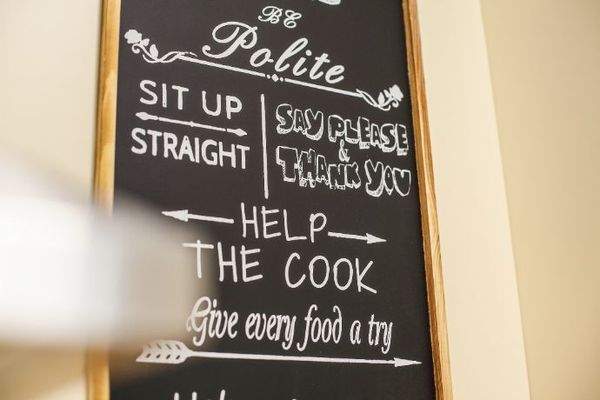 BE
Polite
SIT UP
STRAIGHT
SAY PLEASE
&
THANK YOU
HELP
THE COOK
Give every food a try